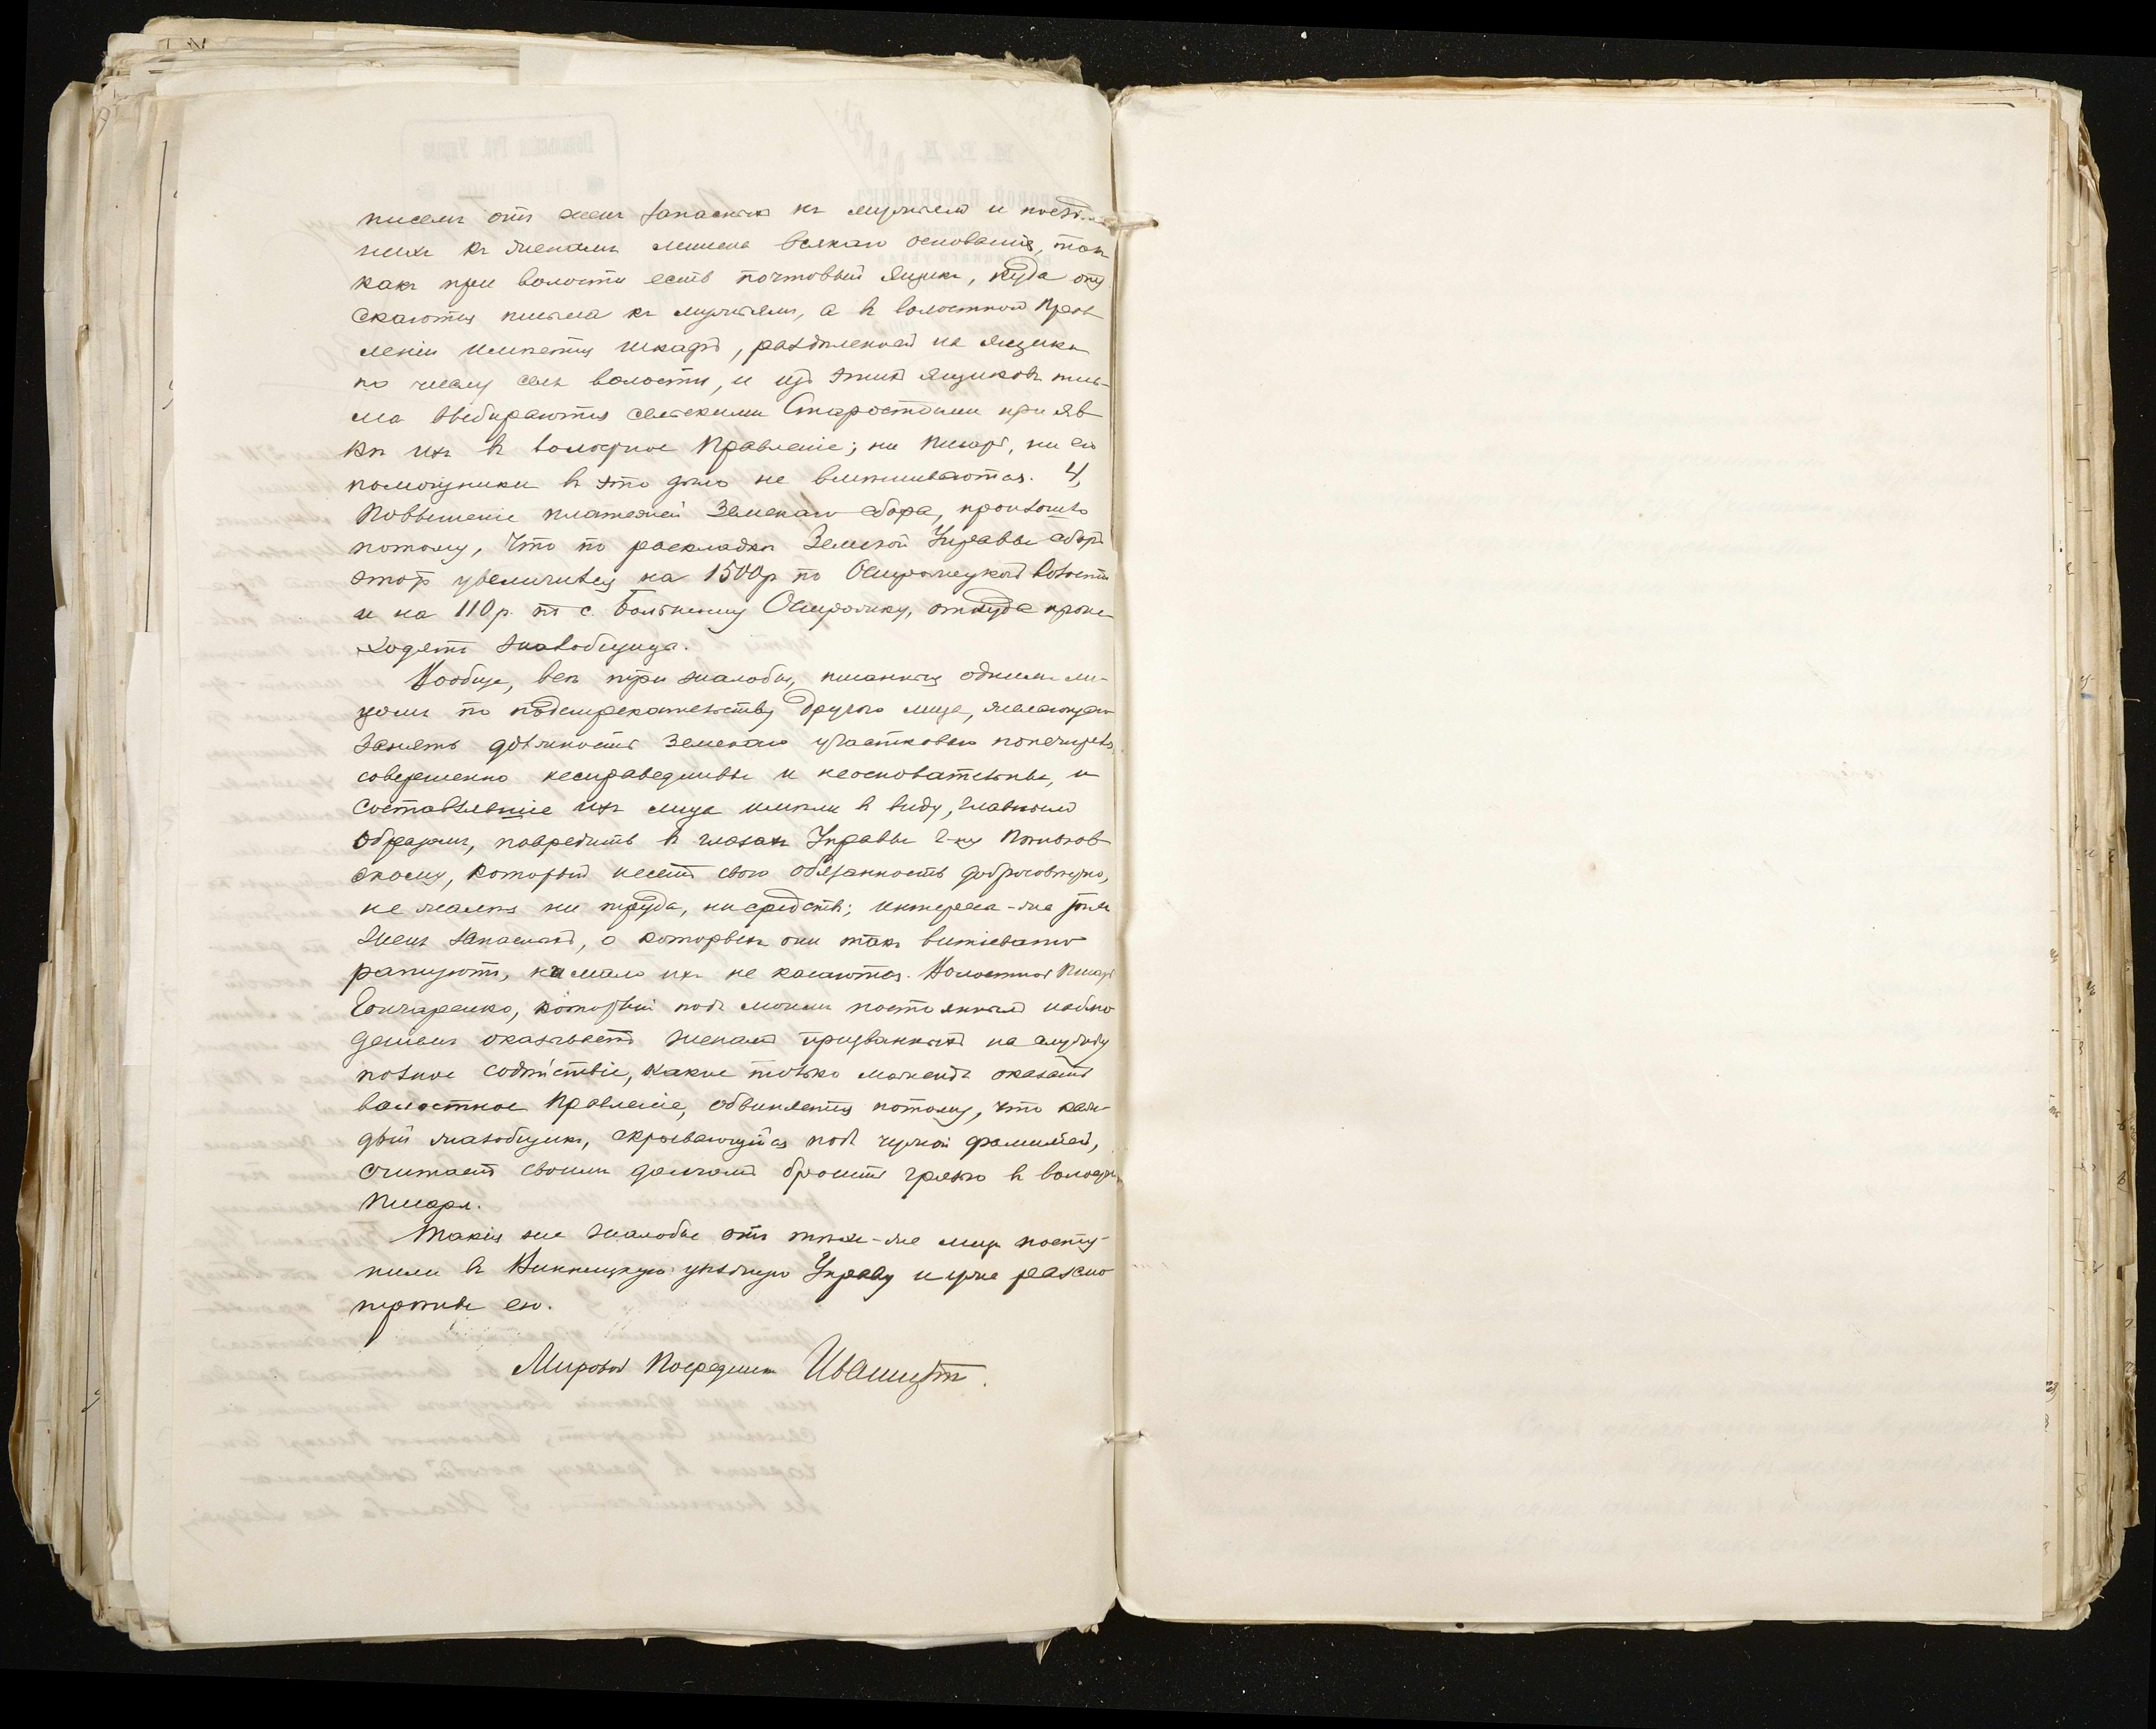 писемъ отъ женъ запасныхъ къ мужьямъ и послѣд-
нихъ къ женамъ лишена всякаго основанія, такъ
какъ при волости есть почтовый ящикъ, куда опу
скаются письма къ мужьямъ, а въ волостномъ Прав
леніи имѣется шкафъ, раздѣленный на ящики
по числу селъ волости, и изъ этихъ ящиковъ пись-
ма выбираются сельскими Старостами при яв
кѣ ихъ въ волостное Правленіе; ни писарь, ни его
помощники въ это дѣло не вмѣшиваются. 4,
Повышеніе платежей Земскаго сбора, произошло
потому, что по раскладкѣ Земской Управы сборъ
этотъ увеличился на 1500р по Остролуцкой волости
и на 110р. по с. Большому, откуда проис
ходятъ жалобщица.
Вообще, всѣ три жалобы, писанныя однимъ ли-
цомъ по подстрекательству другого лица, желающаго
занять должность Земскаго участковаго попечителя,
совершенно несправедливы и неосновательны, и
составлявшіе ихъ лица имѣли въ виду, главнымъ
образомъ, повредить въ глазахъ Управы г-ну
скому, который несетъ свою обязанность добросовѣстно,
не жалѣя ни труда, ни средствъ; интереса-же
женъ запасныхъ, о которыхъ они такъ витіевато
ратуютъ, ни мало ихъ не касаются. Волостной Писарь
Гончаренко, который подъ моимъ постояннымъ наблю
деніемъ оказываетъ женамъ призванныхъ на службу
полное содѣйствіе, какое только можетъ оказать
волостное Правленіе, обвиняется потому, что каж-
дый жалобщикъ, скрывающійся подъ чужой фамиліей,
считаетъ своимъ долгомъ бросить грязью въ волостн.
писаря.
Такія же жалобы отъ тѣхъ-же лицъ посту-
пили въ Винницкую уѣздную Управу и уже разсмо
трѣны ею.
Мировой Посредникъ